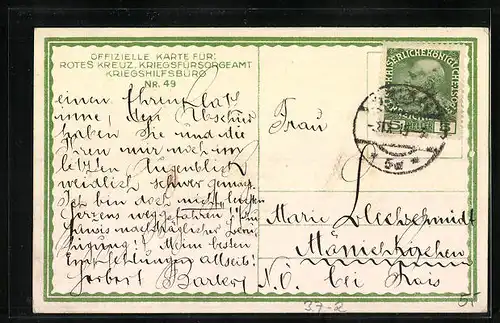 OFFIZIELLE KARTE FÜR:
ROTES KREUZ, KRIEGSFÜRSORGEAMT
KRIEGSHILFSBÜRO
NR. 49
einen Ehrenplatz
inne, den Abschied
haben Sie und die
Ihren mir noch im
letzten Augenblick
weidlich schwer gemacht.
Ich bin doch nicht leichten
Herzens weggefahren! Zur
nachträglicher
! Meine besten
Empfehlungen allseits!
Herbert
Frau
Marie Blechschmidt
Mänichkirchen
N.Ö. bei
5
37-2
5,-